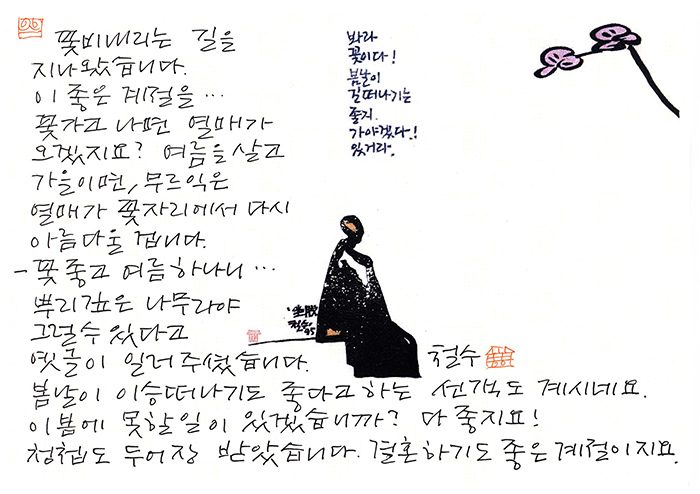 꽃비내리는 길을
지나왔습니다.
이 좋은 계절을…
꽃가고 나면 열매가
오겠지요? 여름을 살고
가을이면, 무르익은
열매가 꽃자리에서 다시
아름다울 겁니다.
-꽃 좋고 여름하나니…
뿌리깊은 나무라야
그럴수 있다고
옛글이 일러주셨습니다.
봄날이 이승떠나기도 좋다고하는 선객도 계시네요.
이봄에 못할일이 있겠습니까? 다 좋지요!
청첩도 두어장 받았습니다. 결혼하기도 좋은계절이지요.
철수
봐라
꽃이다!
봄날이
길떠나기는
좋지.
가야겠다!
있거라.
철수 95